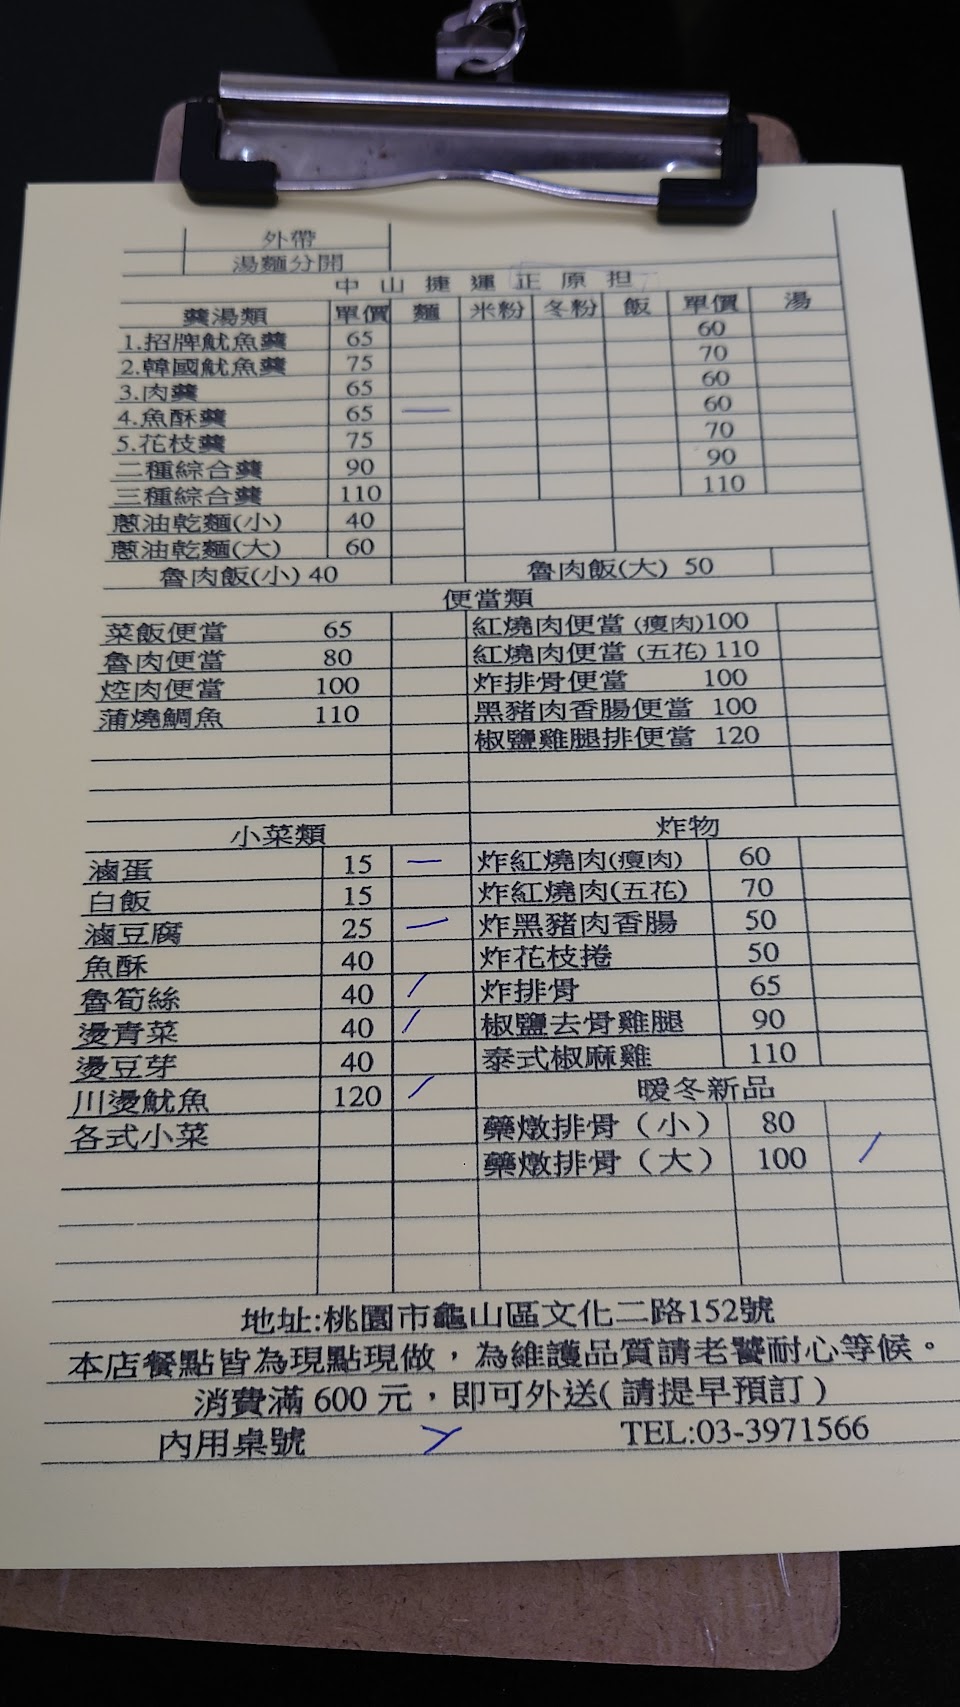 外帶
湯麵分開
中山捷運正原担
羹湯類 單價 麵 米粉 冬粉 飯 單價 湯
1.招牌魷魚羹 65 60
2.韓國魷魚羹 75 70
3.肉羹 65 60
4.魚酥羹 65 一 60
5.花枝羹 75 70
二種綜合羹 90 90
三種綜合羹 110 110
蔥油乾麵(小) 40
蔥油乾麵(大) 60
魯肉飯(小) 40 魯肉飯(大) 50
便當類
菜飯便當 65 紅燒肉便當(瘦肉)100
魯肉便當 80 紅燒肉便當(五花)110
焢肉便當 100 炸排骨便當 100
蒲燒鯛魚 110 黑豬肉香腸便當 100
椒鹽雞腿排便當 120
小菜類 炸物
滷蛋 15 一 炸紅燒肉(瘦肉) 60
白飯 15 炸紅燒肉(五花) 70
滷豆腐 25 一 炸黑豬肉香腸 50
魚酥 40 炸花枝捲 50
魯筍絲 40 / 炸排骨 65
燙青菜 40 / 椒鹽去骨雞腿 90
燙豆芽 40 泰式椒麻雞 110
川燙魷魚 120 / 暖冬新品
各式小菜 藥燉排骨(小) 80
藥燉排骨(大) 100 /
地址:桃園市龜山區文化二路152號
本店餐點皆為現點現做，為維護品質請老饕耐心等候。
消費滿 600 元，即可外送(請提早預訂)
內用桌號 TEL:03-3971566